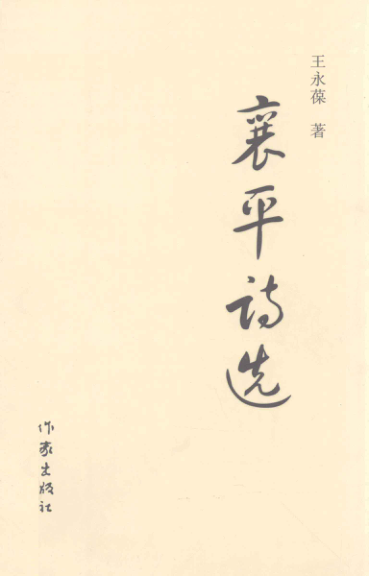 王永葆 著
襄平诗选
作家出版社